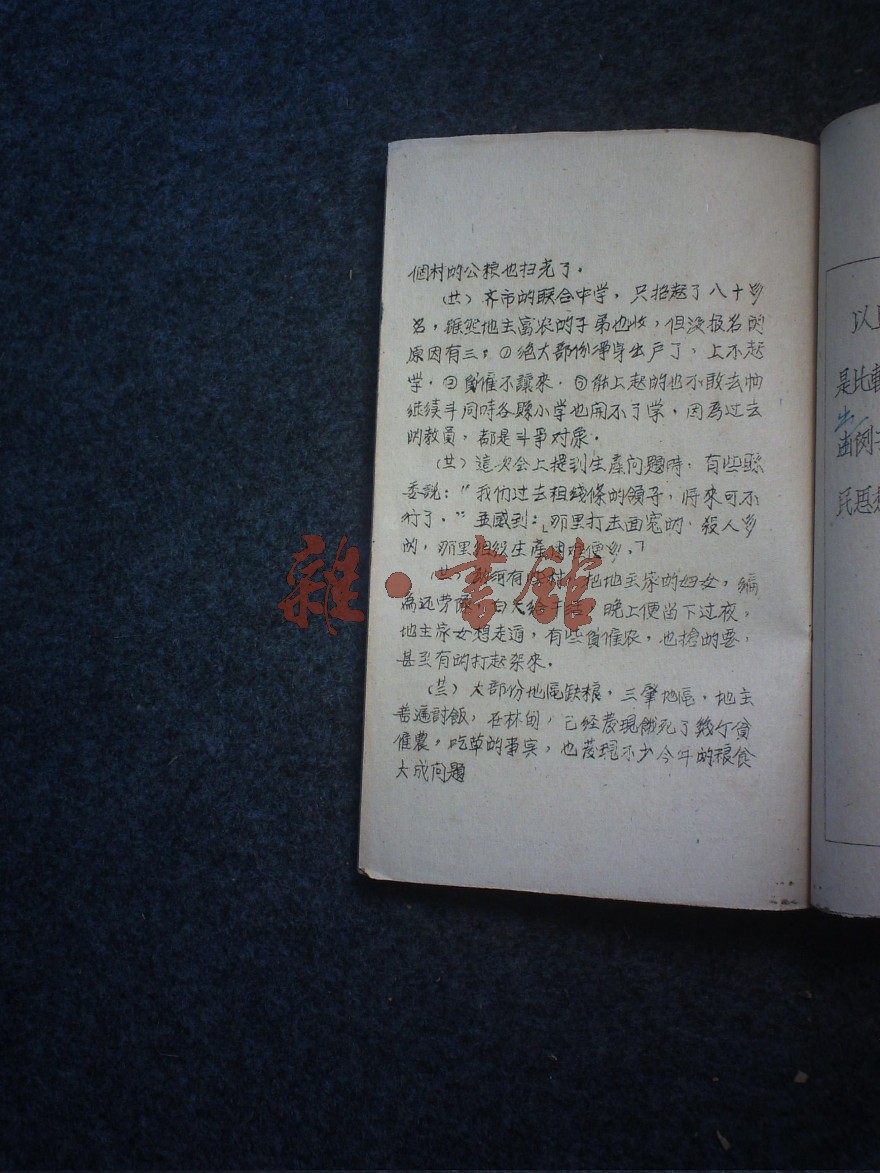 個村的公粮也扫光了。
(廿)齐市的联合中学,只招起了八十多
名,虽然地主富农的子弟也收,但没报名的
原因有三:①绝大部份净身出户了,上不起
学,②貧僱不讓來,③能上起的也不敢去怕
继续斗同時各縣小学也開不了学,因為过去
的教員,都是斗爭对象。
(廿)這次会上提到生產问題時,有些縣
委説:“我们过去粗綫條的領子,將來可不
行了。”並感到:「那里打击面宽的,殺人多
的,那里组织生產困难便多。」
有 把地主家的妇女,編
為还劳隊,白天給干活,晚上便留下过夜,
地主家女想走道,有些貧僱农,也搶的要,
甚至有的打起架來。
(廿三)大部份地區缺粮,三肇地區,地主
普遍討飯,在林甸,已經發現餓死了幾个貧
僱農,吃草的事实,也發現不少今年的粮食
大成问題
以上
是比較
出
例子
民思想
雜·書館